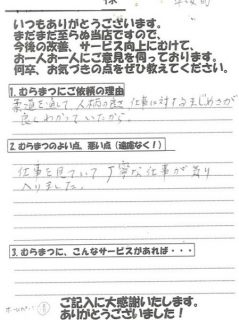 様
いつもありがとうございます。
まだまだ至らぬ当店ですので、
今後の改善、サービス向上にむけて、
お一人お一人にご意見を伺っております。
何卒、お気づきの点をぜひ教えてください。
1. むらまつにご依頼の理由
柔道を通して、人柄の良さ、仕事に対するまじめさが
良くわかっていたから。
2. むらまつのよい点、悪い点（遠慮なく！）
仕事を見ていて丁寧な仕事が
入りました。
3. むらまつに、こんなサービスがあれば・・・
ご記入に大感謝いたします。
ありがとうございました！